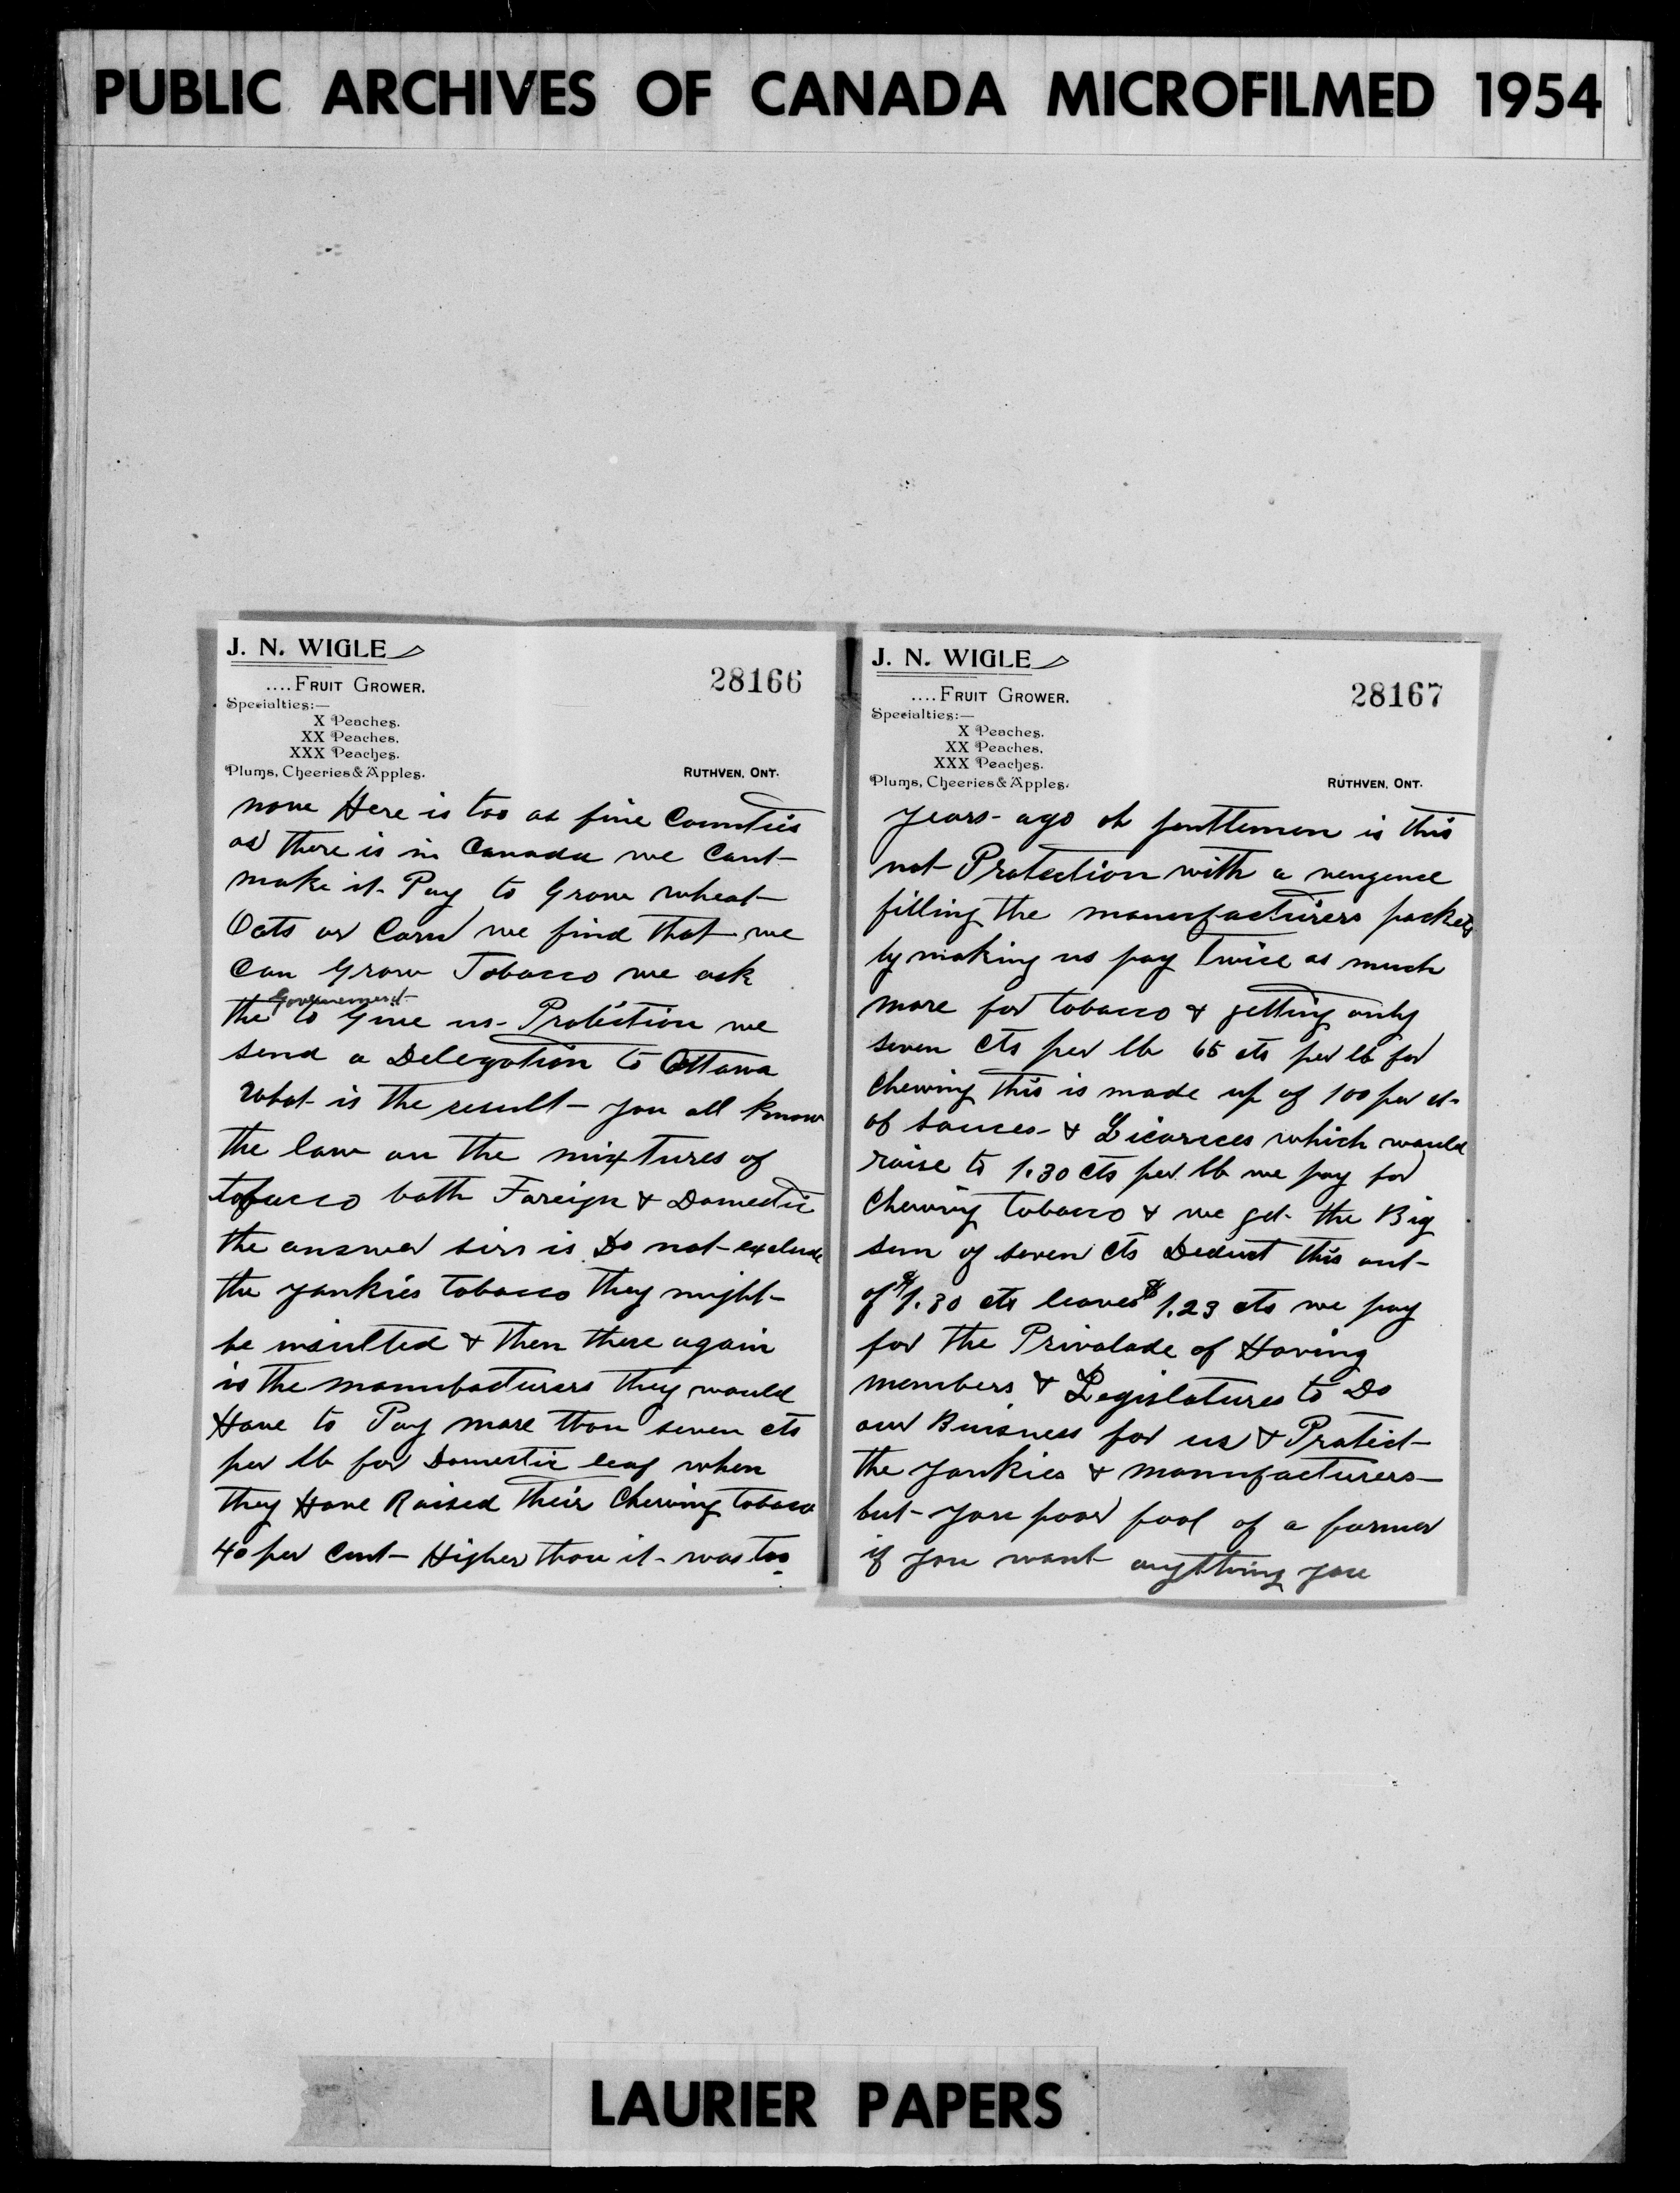 PUBLIC ARCHIVES OF CANADA MICROFILMED 1954
J. N. WIGLE
....FRUIT GROWER.
28166
Specialties:—
X Peaches.
XX Peaches.
XXX Peaches.
Plums, Cheeries & Apples.
RUTHVEN, ONT.
now Here is too as fine Counties
as there is in Canada we Cant
make it Pay to Grow wheat
Oats or Corn we find that we
Can Grow Tobacco we ask
Government
the to Give us Protection we
send a Delegation to Ottawa
What is the result you all know
the law on the mixtures of
tobacco both Foreign & Domestic
the answer sirs is Do not exclude
the yankies tobacco they might
be insulted & then there again
is the manufacturers they would
Have to Pay more than seven cts
per lb for Domestic leaf when
they Have Raised their Chewing tobacco
40 per Cent Higher than it was too
J. N. WIGLE
....FRUIT GROWER.
28167
Specialties:—
X Peaches.
XX Peaches.
XXX Peaches.
Plums, Cheeries & Apples.
RUTHVEN, ONT.
years ago oh gentlemen is this
not Protection with a vengence
filling the manufacturers pockets
by making us pay twice as much
more for tobacco & getting only
seven cts per lb 65 cts per lb for
Chewing this is made up of 100 per ct
of sauces & Licorices which would
raise to 1.30 cts per lb we pay for
Chewing tobacco & we get the Big
sum of seven cts Deduct this out
of $1.30 cts leaves $1.23 cts we pay
for the Privalade of Having
members & Legislatures to Do
our Buisness for us & Protect
the yankies & manufacturers
but you poor fool of a farmer
if you want anything you
LAURIER PAPERS